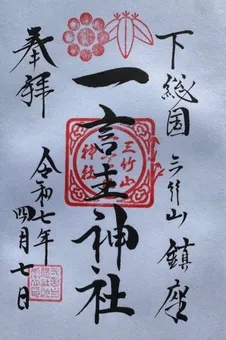 下総国 三竹山 鎮座
奉拝
一言主神社
三竹山
神社
令和七年
四月七日